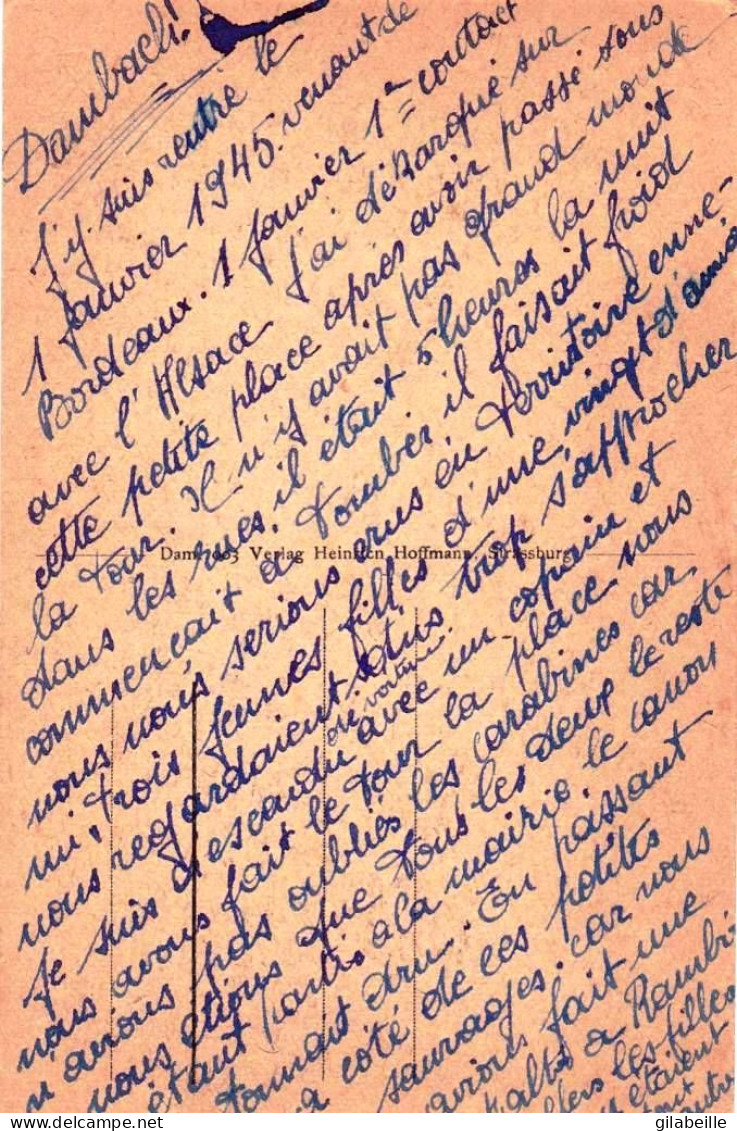 Dambach!
J'y suis rentré le
1 Janvier 1945. venant de
Bordeaux. 1 Janvier 1er contact
avec l'Alsace J'ai débarqué sur
cette petite place après avoir passé sous
la tour. Il n'y avait pas grand monde
dans les rues, il était 5 heures la nuit
commençait à tomber, il faisait froid
nous nous serions crus en territoire enne-
mi, trois jeunes filles d'une vingt d'année
nous regardaient sans trop s'approcher
Je suis descendu de voiture avec un copain et
nous avons fait le tour la place nous
n'avions pas oubliés les carabines car
nous étions que tous les deux le reste
étant partis à la mairie, le canon
tonnait dru. En passant
à côté de ces petites
sauvages, car nous
avions fait une
halte a Rambi
les filles
étaient
Dam 7003 Verlag Heinrich Hoffmann, Strassburg
gilabeille